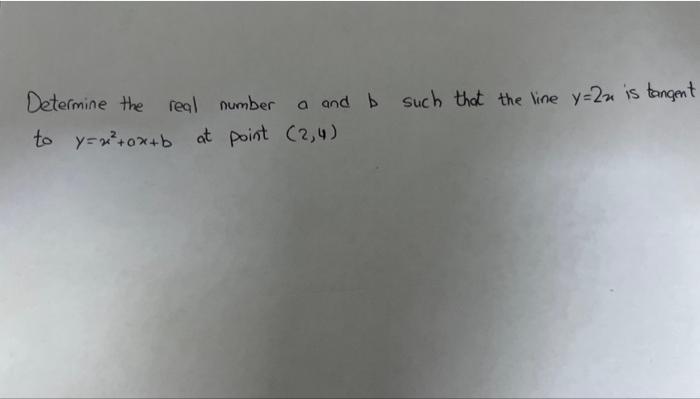 Determine the real number a and b such that the line y=2x is tangent
to y=x²+ax+b at point (2,4)